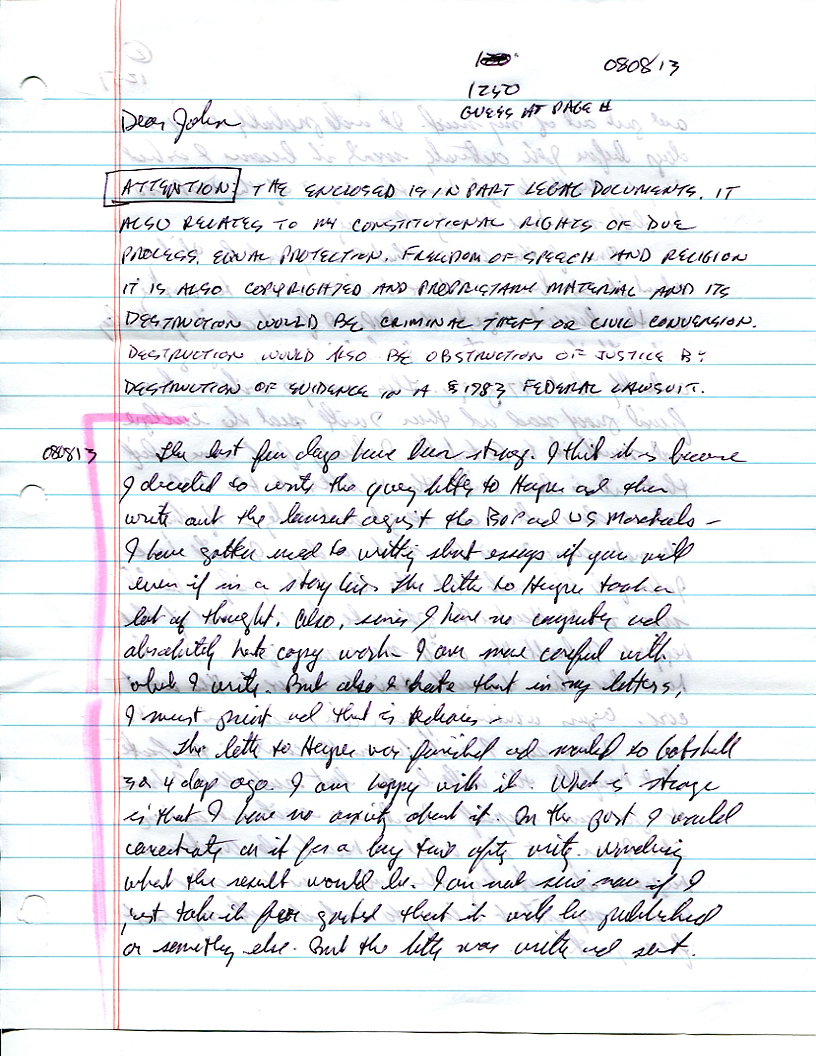 080813
1240
GUESS AT PAGE #
Dear John
ATTENTION: THE ENCLOSED IS IN PART LEGAL DOCUMENTS. IT
ALSO RELATES TO MY CONSTITUTIONAL RIGHTS OF DUE
PROCESS, EQUAL PROTECTION, FREEDOM OF SPEECH AND RELIGION
IT IS ALSO COPYRIGHTED AND PROPRIETARY MATERIAL AND ITS
DESTRUCTION WOULD BE CRIMINAL THEFT OR CIVIL CONVERSION.
DESTRUCTION WOULD ALSO BE OBSTRUCTION OF JUSTICE BY
DESTRUCTION OF EVIDENCE IN A § 1983 FEDERAL LAWSUIT.
080813 The last few days have been strange. I think it is because
I decided to write the query letter to and then
write out the lawsuit against the BOP and US Marshals –
I have gotten used to writing short essays if you will
even if in a story line. The letter to took a
lot of thought. Also, since I have no computer and
absolutely hate copy work – I am more careful with
what I write. But also I hate that in my letters,
I must print and that is tedious –
The letter to was finished and mailed to
3 or 4 days ago. I am happy with it. What is strange
is that I have no anxiety about it. In the past I would
concentrate on it for a long time after write. Wondering
what the result would be. I am not sure now if I
just take it for granted that it will be published
or something else. But the letter was written and sent.